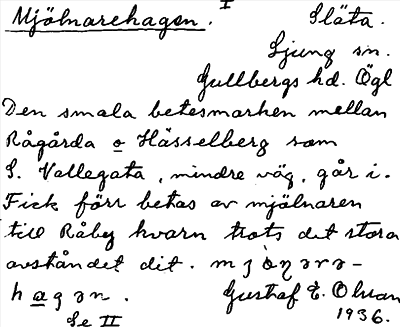 Mjölnarehagen. I Släta.
Ljung sn.
Gullbergs hd. Ögl
Den smala betesmarken mellan
Rågårda o Hässelberg som
S. Vallegata, mindre väg, går i.
Fick förr betas av mjölnaren
till Råby kvarn trots det stora
avståndet dit. mjö̀ṇərə-
hagən. Gustaf E. Olsson
Se II 1936.